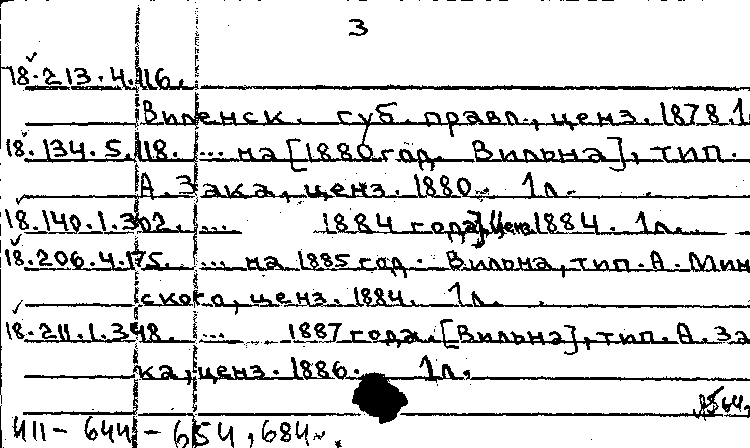 3
18.213.4.116.
Виленск. губ. правл., ценз. 1878. 1
18.134.5.118. ... на [1880 год. Вильна], тип.
А. Зака, ценз. 1880. 1л.
18.140.1.302. ... 1884 года], ценз. 1884. 1л.
18.206.4.175. ... на 1885 год. Вильна, тип. А. Мин
ского, ценз. 1884. 1л.
18.211.1.348. ... 1887 года. [Вильна], тип. А. За
ка, ценз. 1886. 1л.
411 - 644 - 654, 684